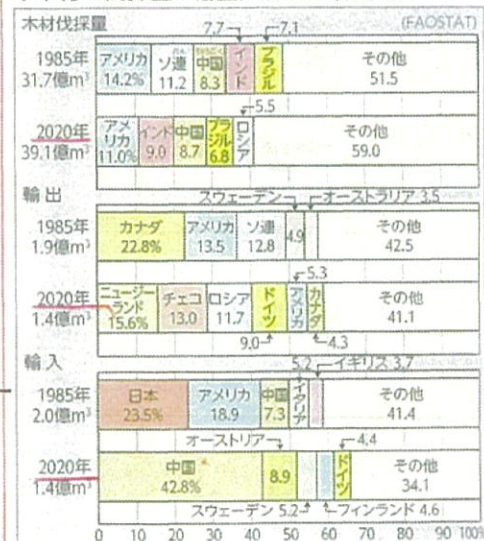 木材伐採量 (FAOSTAT)
7.7 7.1
1985年 31.7億m³ アメリカ 14.2% ソ連 11.2 中国 8.3 インド ブラジル その他 51.5
5.5
2020年 39.1億m³ アメリカ 11.0% インド 9.0 中国 8.7 ブラジル 6.8 ロシア その他 59.0
輸出 スウェーデン オーストラリア 3.5
1985年 1.9億m³ カナダ 22.8% アメリカ 13.5 ソ連 12.8 4.9 その他 42.5
5.3
2020年 1.4億m³ ニュージーランド 15.6% チェコ 13.0 ロシア 11.7 ドイツ アメリカ カナダ その他 41.1
9.0 4.3
輸入 5.2 イギリス 3.7
1985年 2.0億m³ 日本 23.5% アメリカ 18.9 中国 7.3 イタリア その他 41.4
オーストリア 4.4
2020年 1.4億m³ 中国 42.8% 8.9 ドイツ その他 34.1
スウェーデン 5.2 フィンランド 4.6
0 10 20 30 40 50 60 70 80 90 100%